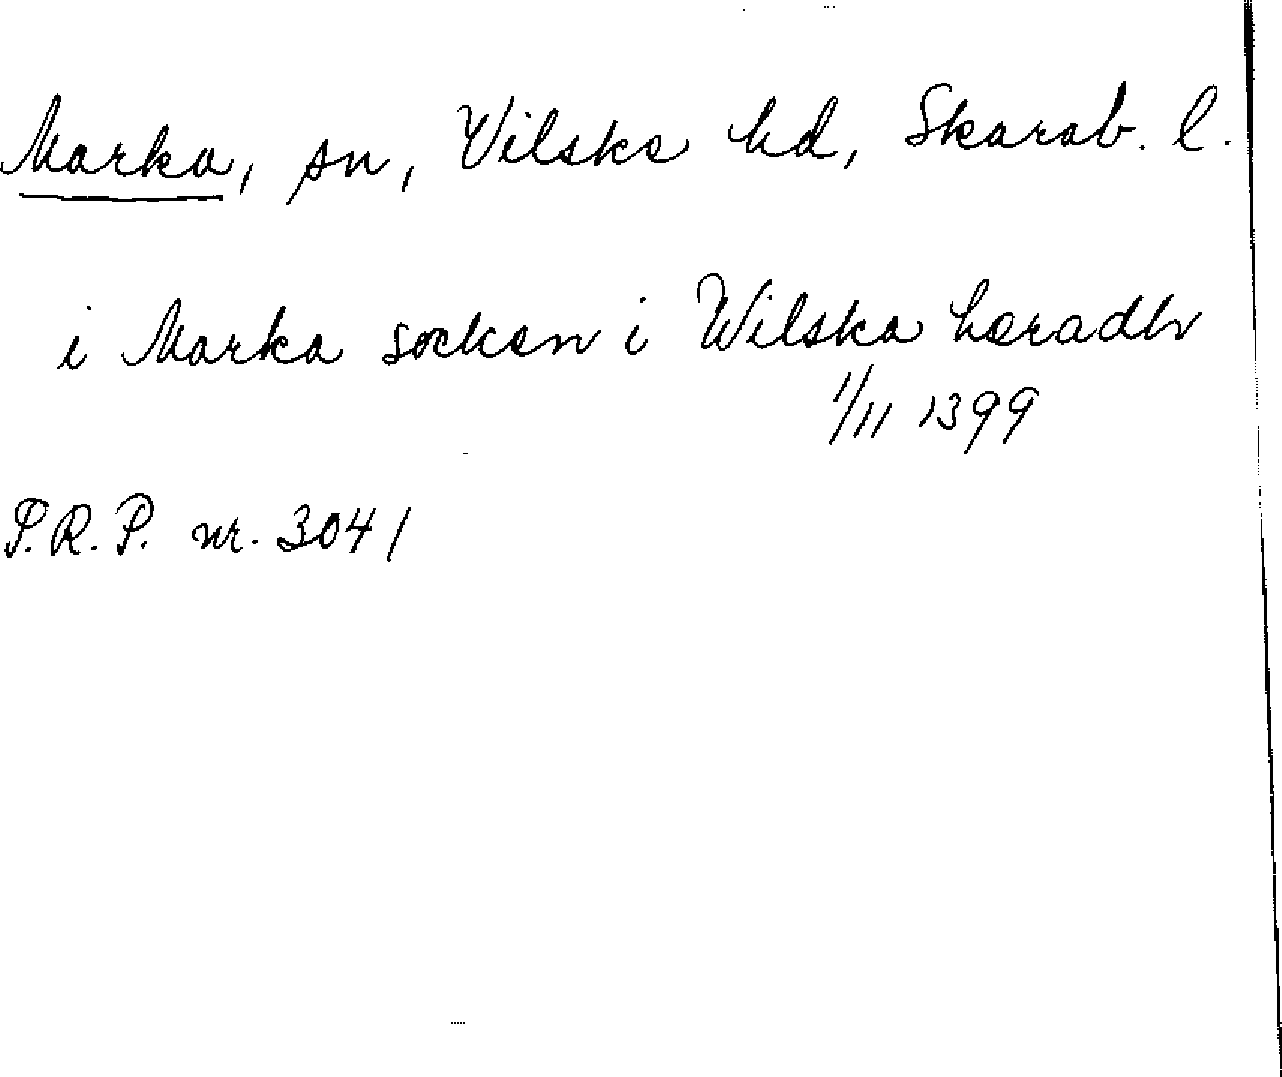 Marka, sn, Vilske hd, Skarab. l.
i Marka socken i Wilska hæradh
1/11 1399
P.R.P. nr. 3041